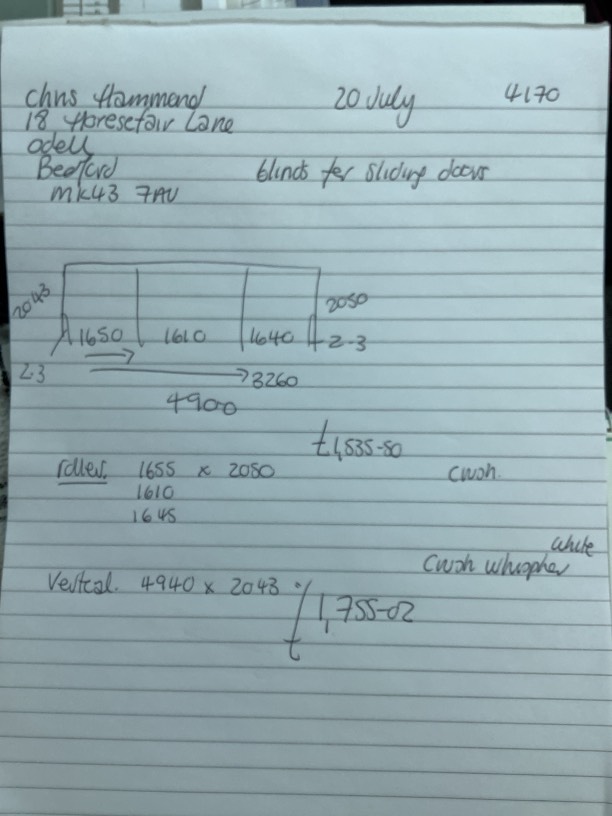 Chris Hammond 20 July 4170
18 Horesefair Lane
Odell
Bedford blinds for sliding doors
MK43 7AU
2043 2050
1650 1610 1640 2-3
2-3 3260
4900
£1,535-50
rollers. 1655 x 2050
1610
1645
white
Vertical. 4940 x 2043
£1,755-02